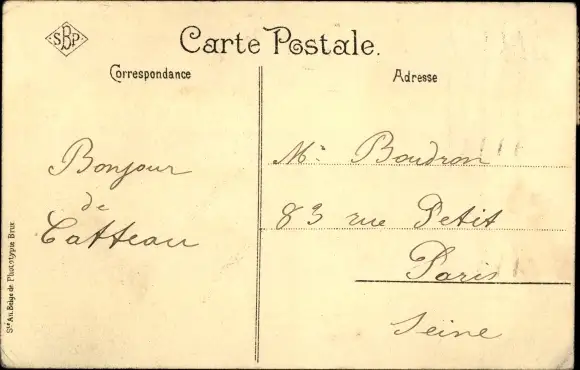 SBP
Carte Postale.
Correspondance
Adresse
Bonjour
de
Catteau
Mr Boudron
83 rue Petit
Paris
Seine
Sté An. Belge de Phototypie Brux